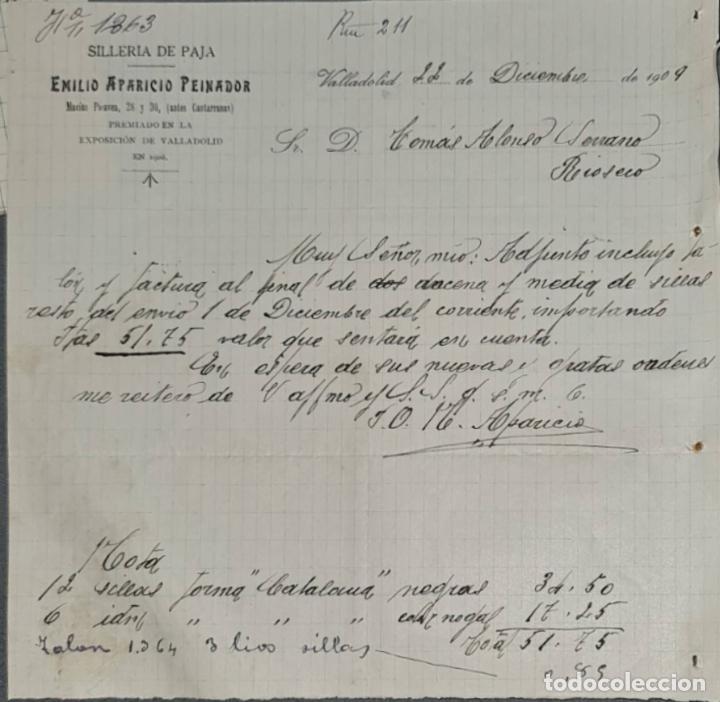 1863
Rm 211
SILLERIA DE PAJA
EMILIO APARICIO PEINADOR
Macías Picavea, 28 y 30, (antes Cantarranas)
PREMIADO EN LA
EXPOSICIÓN DE VALLADOLID
EN 1906.
Valladolid 22 de Diciembre de 1909
Sr. D. Tomás Alonso Serrano
Rioseco
Muy Señor mio: Adjunto incluyo ta-
lón y factura al final de dos docena y media de sillas
resto del envio 1 de Diciembre del corriente, importando
Ptas 51.75 valor que sentará en cuenta.
En espera de sus nuevas y gratas ordenes
me reitero de V affmo y S. S. q. s. m. b.
P.O. M. Aparicio
Nota
12 sillas forma "Catalana" negras 34.50
6 idm " " " color nogal 17.25
Talon 1.364 3 lios sillas Total 51.75
todocoleccion.net